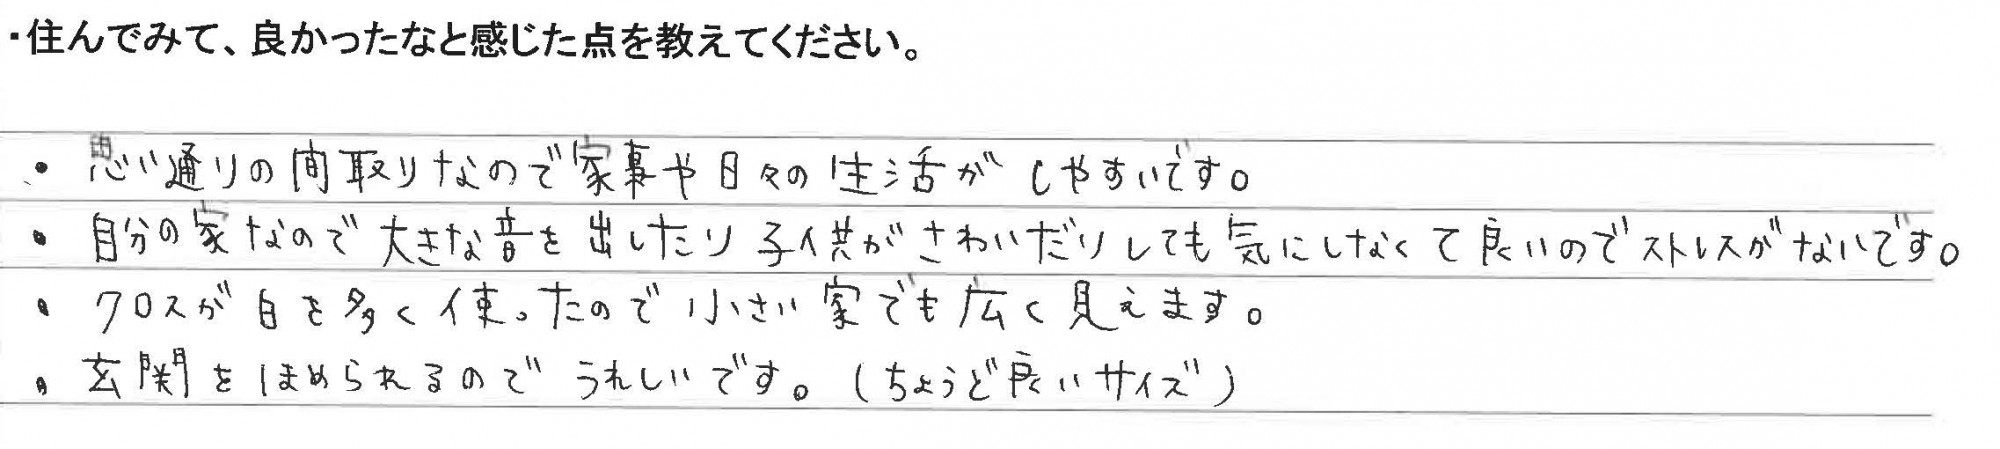 ・住んでみて、良かったなと感じた点を教えてください。
・思い通りの間取りなので家事や日々の生活がしやすいです。
・自分の家なので大きな音を出したり子供がさわいだりしても気にしなくて良いのでストレスがないです。
・クロスが白を多く使ったので小さい家でも広く見えます。
・玄関をほめられるのでうれしいです。(ちょうど良いサイズ)